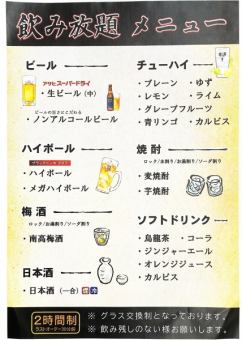 飲み放題 メニュー
ビール
アサヒスーパードライ
・生ビール(中)
ビールの旨さにこだわる
・ノンアルコールビール
ハイボール
・ハイボール
・メガハイボール
梅酒
ロック/水割り/お湯割り/ソーダ割り
・南高梅酒
日本酒
・日本酒(一合)
チューハイ
・プレーン ・ゆず
・レモン ・ライム
・グレープフルーツ
・青リンゴ ・カルピス
焼酎
ロック/水割り/お湯割り/ソーダ割り
・麦焼酎
・芋焼酎
ソフトドリンク
・烏龍茶 ・コーラ
・ジンジャーエール
・オレンジジュース
・カルピス
2時間制
ラストオーダー30分前
※ グラス交換制となっております。
※ 飲み残しのない様お願いします。